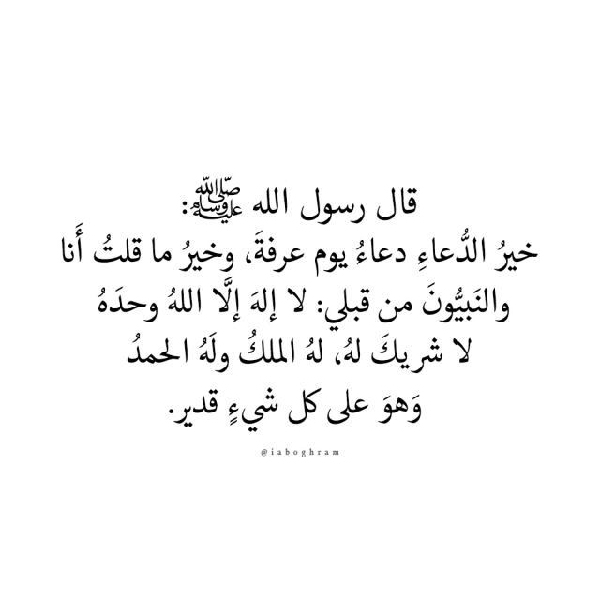 قال رسول الله ﷺ:
خيرُ الدُّعاءِ دعاءُ يوم عرفةَ، وخيرُ ما قلتُ أَنا
والنَبيُّونَ من قبلي: لا إلهَ إلَّا اللهُ وحدَهُ
لا شريكَ لهُ، لهُ الملكُ ولَهُ الحمدُ
وَهوَ على كل شيءٍ قدير.
@iaboghram